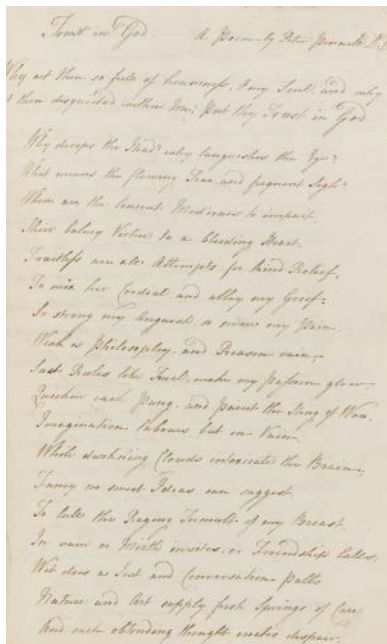 Trust in God. A Poem by Peter
Why art thou so full of heaviness, O my Soul, and why
thou disquieted within me; put thy Trust in God
Why droops the Head? why languishes the Eye?
What means the flowing Tear, and frequent Sigh?
Where are the lenient Medicines to impart
Their balmy Virtue to a bleeding Heart.
Fruitless are all Attempts for kind Relief,
To mix her Cordial, and allay my Grief
So strong my Anguish so severe my Pain
Weak is Philosophy, and Reason vain,
Such Rules like Fuel, makes my passion glow
Quicken each Pang, and point the Sting of Woe.
Imagination labours but in Vain,
While dark'ning Clouds intoxicate the Brain,
Fancy no sweet Ideas can suggest
To lull the Raging Tumult of my Breast,
In vain or Mirth invites, or Friendship calls,
Wit dies a Jest and Conversation palls
Nature and Art supply fresh Springs of Care
And each obtruding thought creates despair